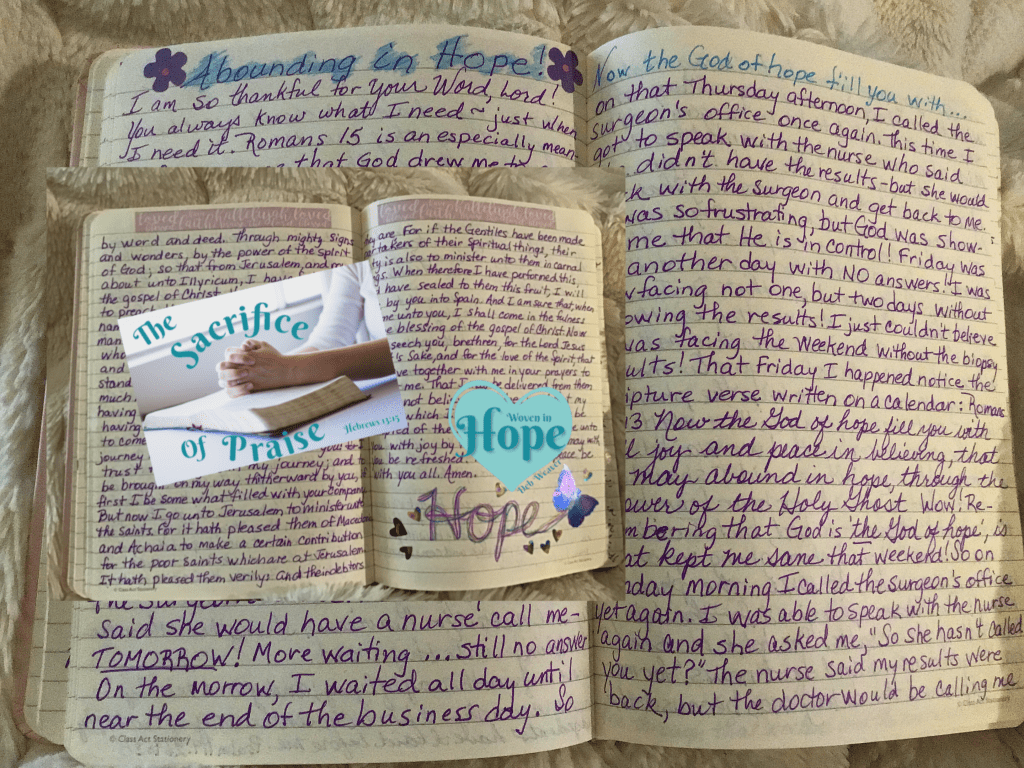 Abounding in Hope!
I am so thankful for Your Word, Lord!
You always know what I need ~ just when
I need it. Romans 15 is an especially mean
that God drew me to
said she would have a nurse call me-
TOMORROW! More waiting ... still no answer
On the morrow, I waited all day until
near the end of the business day. So
© Class Act Stationery
Now the God of hope fill you with...
on that Thursday afternoon, I called the
surgeon's office once again. This time I
got to speak with the nurse who said
didn't have the results - but she would
k with the surgeon and get back to me.
was so frustrating, but God was show-
me that He is in control! Friday was
another day with NO answers! I was
facing not one, but two days without
owing the results! I just couldn't believe
was facing the weekend without the biopsy
ults! That Friday I happened notice the
ipture verse written on a calendar: Romans
13 Now the God of hope fill you with
l joy and peace in believing, that
may abound in hope, through the
ower of the Holy Ghost Wow! Re-
mbering that God is 'the God of hope', is
t kept me sane that weekend! So on
nday morning I called the surgeon's office
yet again. I was able to speak with the nurse
again and she asked me, "So she hasn't called
you yet?" The nurse said my results were
back, but the doctor would be calling me
loved hallelujah loved
by word and deed. Through mighty signs
and wonders, by the power of the spirit
of God; so that from Jerusalem, and
about unto Illyricum, I have
the gospel of Christ
to preach
and
stand
much
having
having
to come
journey
trust
be brought on my way thitherward by you, if
first I be somewhat filled with your company.
But now I go unto Jerusalem to minister unto
the saints. For it hath pleased them of Macedonia
and Achaia to make a certain contribution
for the poor saints which are at Jerusalem.
It hath pleased them verily; and their debtors
© Class Act Stationery
they are. For if the Gentiles have been made
takers of their spiritual things, their
ty is also to minister unto them in carnal
gs. When therefore I have performed this,
have sealed to them this fruit, I will
by you into Spain. And I am sure that, when
me unto you, I shall come in the fulness
e blessing of the gospel of Christ. Now
seech you, brethren, for the Lord Jesus
's sake, and for the love of the Spirit, that
ve together with me in your prayers to
me. That I be delivered from them
not beli my
which be
ed of the unto
you with joy by may with
you be refreshed. peace be
with you all. Amen.
Hope
The Sacrifice
Of Praise
Hebrews 13:15
Woven in
Hope
Deb Weaver